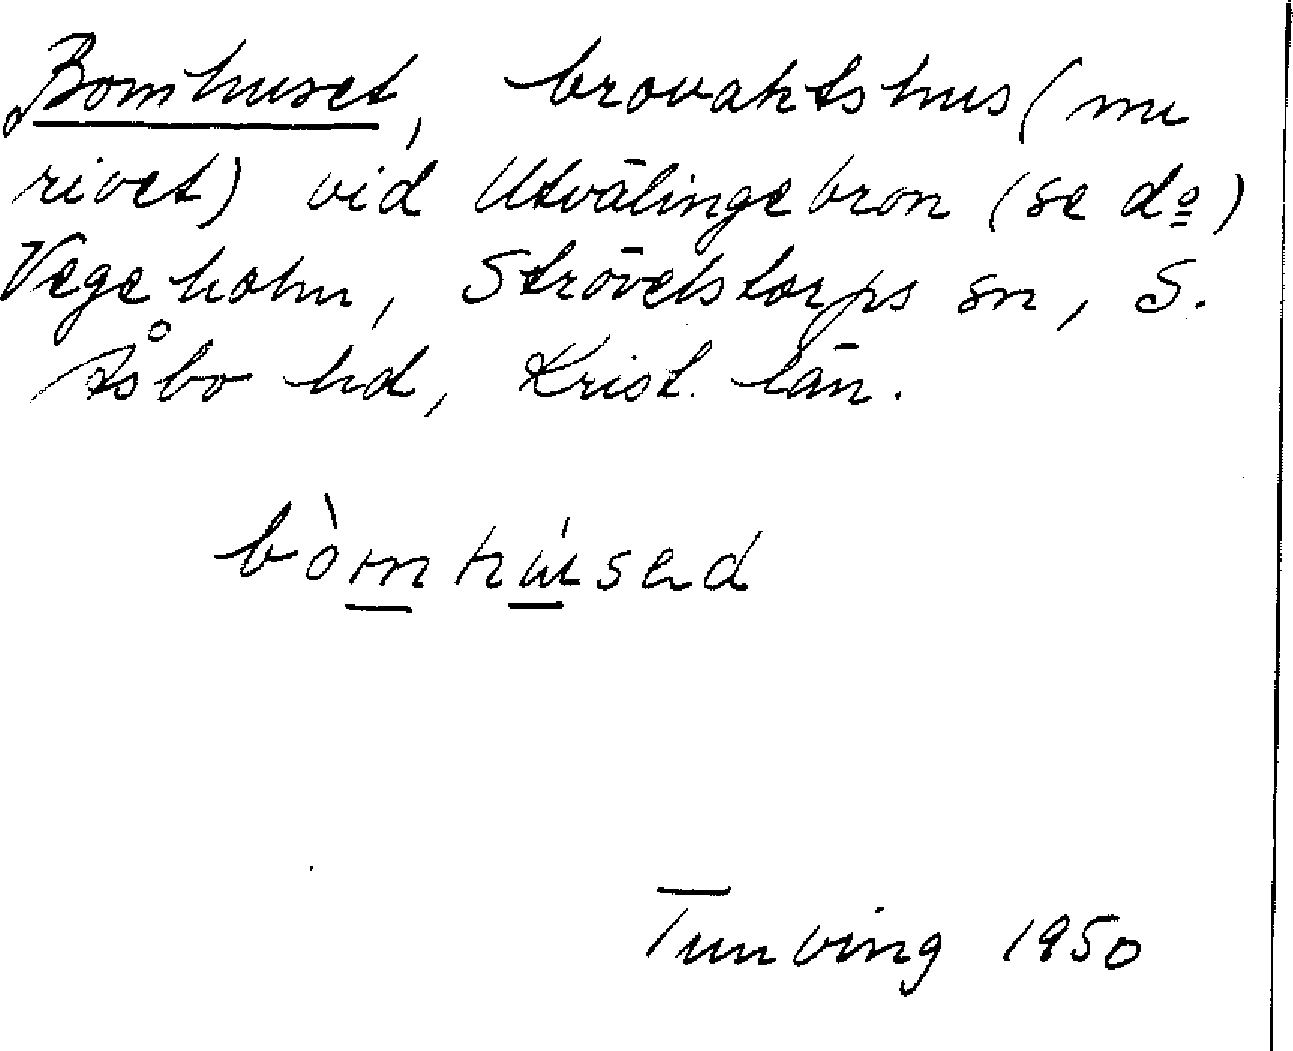 Bomhuset, brovaktshus (nu
rivet) vid Utvälingebron (se do)
Vegeholm, Strövelstorps sn, S.
Åsbo hd, Krist. län.
bòmhúsed
Tunving 1950